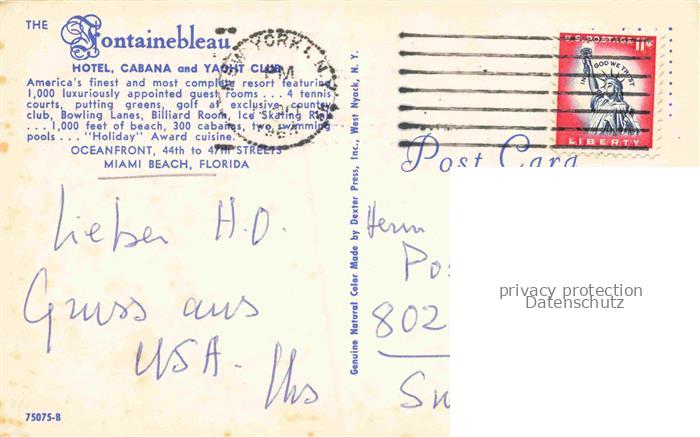 THE
Fontainebleau
HOTEL, CABANA and YACHT CLUB
America's finest and most complete resort featuring
1,000 luxuriously appointed guest rooms . . . 4 tennis
courts, putting greens, golf at exclusive country
club, Bowling Lanes, Billiard Room, Ice Skating Rink
. . . 1,000 feet of beach, 300 cabanas, two swimming
pools . . . . "Holiday" Award cuisine.
OCEANFRONT, 44th to 47th STREETS
MIAMI BEACH, FLORIDA
NEW YORK, N.Y.
PM
U.S. POSTAGE 11¢
IN GOD WE TRUST
LIBERTY
Post Card
Genuine Natural Color Made by Dexter Press, Inc., West Nyack, N. Y.
Lieber H.O.
Gruss aus
USA.
Herrn
Pos
802
privacy protection
Datenschutz
75075-B